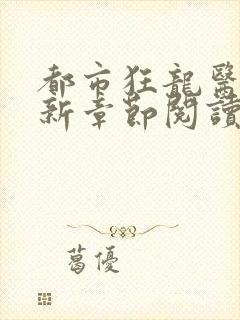 都市狂龍醫
新章節閱讀
葛優